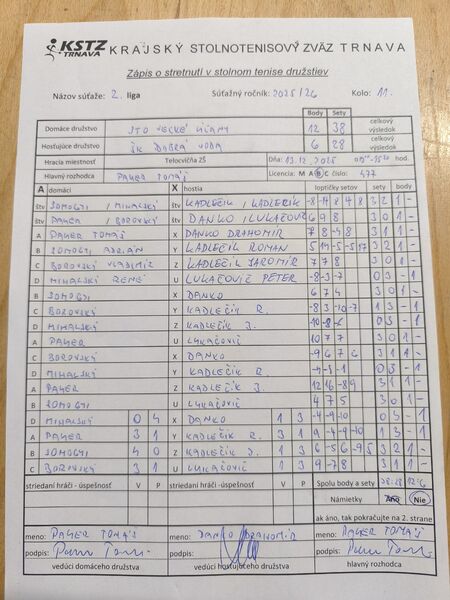 KSTZ TRNAVA KRAJSKÝ STOLNOTENISOVÝ ZVÄZ TRNAVA
Zápis o stretnutí v stolnom tenise družstiev
Názov súťaže: 2. liga Súťažný ročník: 2025/26 Kolo: 11.
Body Sety celkový
Domáce družstvo STO VEĽKÉ ÚĽANY 12 38 výsledok
Hosťujúce družstvo ŠK DOBRÁ VODA 6 28 celkový výsledok
Hracia miestnosť Telocvičňa ZŠ Dňa: 13.12.2025 hod.
Hlavný rozhodca PAHER TOMÁŠ Licencia: M A B C číslo: 477
A domáci X hostia loptičky setov sety body
štv SOMOGYI / MIHALSKÝ štv KADLEČÍK / KADLEČÍK -8 4 8 4 8 3 2 1 -
štv PAHER / BOROVSKÝ štv DANKO / LUKAČOVIČ 6 9 8 3 0 1 -
A PAHER TOMÁŠ X DANKO DRAHOMÍR 7 8 -4 8 3 1 1 -
B SOMOGYI ADRIÁN Y KADLEČÍK ROMAN 3 2 1 -
C BOROVSKÝ VLADIMÍR Z KADLEČÍK JAROMÍR 7 7 8 3 0 1 -
D MIHALSKÝ RENÉ U LUKAČOVIČ PETER -8 -3 -7 0 3 - 1
B SOMOGYI X DANKO 6 7 4 3 0 1 -
C BOROVSKÝ Y KADLEČÍK R. -8 3 -10 -7 1 3 - 1
D MIHALSKÝ Z KADLEČÍK J. -10 -8 -6 0 3 - 1
A PAHER U LUKAČOVIČ 10 7 7 3 0 1 -
C BOROVSKÝ X DANKO -9 6 7 6 3 1 1 -
D MIHALSKÝ Y KADLEČÍK R. 0 3 - 1
A PAHER Z KADLEČÍK J. 12 16 -8 9 3 1 1 -
B SOMOGYI U LUKAČOVIČ 4 7 5 3 0 1 -
D MIHALSKÝ 0 4 X DANKO 1 3 -4 -9 -10 0 3 - 1
A PAHER 3 1 Y KADLEČÍK R. 3 1 9 -4 -9 -10 1 3 - 1
B SOMOGYI 4 0 Z KADLEČÍK J. 1 3 6 -5 6 -9 5 3 2 1 -
C BOROVSKÝ 3 1 U LUKAČOVIČ 1 3 3 1 1 -
striedaní hráči - úspešnosť V P striedaní hráči - úspešnosť V P Spolu body a sety 38:28 12:6
Námietky Áno Nie
ak áno, tak pokračujte na 2. strane
meno: PAHER TOMÁŠ meno: DANKO DRAHOMÍR meno: PAHER TOMÁŠ
podpis: podpis: podpis:
vedúci domáceho družstva vedúci hosťujúceho družstva hlavný rozhodca